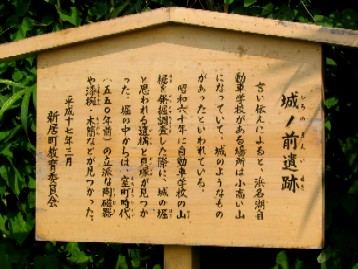 城ノ前遺跡
しろのまえいせき
言い伝えによると、浜名湖自
動車学校がある場所は小高い山
になっていて、城のようなもの
があったといわれている。
昭和六十年に自動車学校の山
裾を発掘調査した際に、城の堀
と思われる遺構と貝塚が見つか
った。堀の中からは、室町時代
(五五〇年前)の立派な陶磁器
や漆椀、木簡などが見つかった。
平成十七年三月
新居町教育委員会